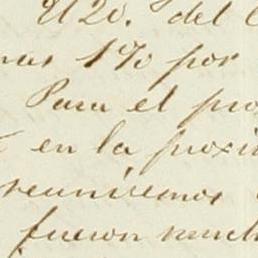 El 20. del
mas 1% por
Para el pro
en la proxi
reuniremos
fueron much